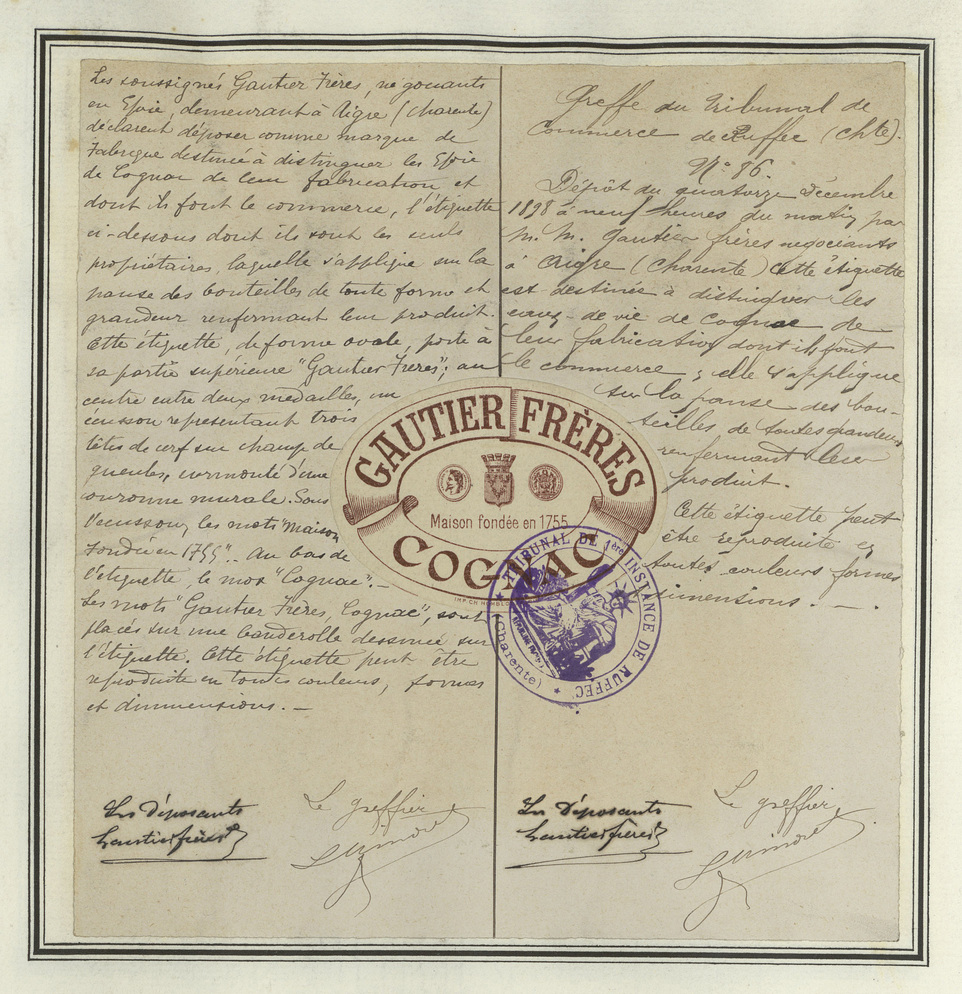 Les soussignés Gautier Frères, négociants
en Efvie, demeurant à Aigre (Charente)
déclarent déposer comme marque de
Fabrique destinée à distinguer les Efvie
de Cognac de leur fabrication et
dont ils font le commerce, l'étiquette
ci-dessous dont ils sont les seuls
propriétaires, laquelle s'applique sur la
panse des bouteilles de toute forme et
grandeur renfermant leur produit.
Cette étiquette, de forme ovale, porte à
sa partie supérieure "Gautier Frères"; au
centre entre deux médailles, un
écusson représentant trois
têtes de cerf sur champ de
gueules, surmonté d'une
couronne murale. Sous
l'écusson, les mots "Maison
Fondée en 1755". Au bas de
l'étiquette, le mot "Cognac".-
Les mots "Gautier Frères, Cognac", sont
placés sur une banderolle dessinée sur
l'étiquette. Cette étiquette peut être
reproduite en toutes couleurs, formes
et dimmensions. —
Les Déposants
Gautier frères
Le greffier
Greffe du Tribunal de
Commerce de Ruffec (Chte).
N° 86.
Dépôt du quatorze Décembre
1898 à neuf heures du matin par
M. M. Gautier frères négociants
à Aigre (Charente) Cette étiquette
est destinée à distinguer les
eaux-de-vie de Cognac de
leur fabrication dont ils font
le commerce ; elle s'applique
sur la panse des bou-
teilles de toutes grandeurs
renfermant leur
produit.
Cette étiquette peut
être reproduite en
toutes couleurs formes
dimensions. —
Les Déposants
Gautier frères
Le greffier
GAUTIER FRÈRES
Maison fondée en 1755
COGNAC
TRIBUNAL DE 1ère INSTANCE DE RUFFEC
(Charente)